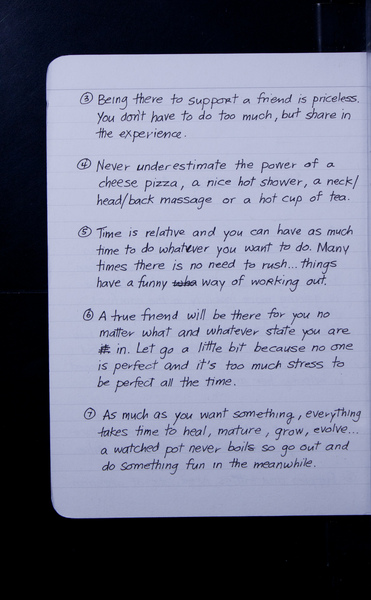 ③ Being there to support a friend is priceless.
You don't have to do too much, but share in
the experience.
④ Never underestimate the power of a
cheese pizza, a nice hot shower, a neck/
head/back massage or a hot cup of tea.
⑤ Time is relative and you can have as much
time to do whatever you want to do. Many
times there is no need to rush... things
have a funny way of working out.
⑥ A true friend will be there for you no
matter what and whatever state you are
in. Let go a little bit because no one
is perfect and it's too much stress to
be perfect all the time.
⑦ As much as you want something, everything
takes time to heal, mature, grow, evolve...
a watched pot never boils so go out and
do something fun in the meanwhile.